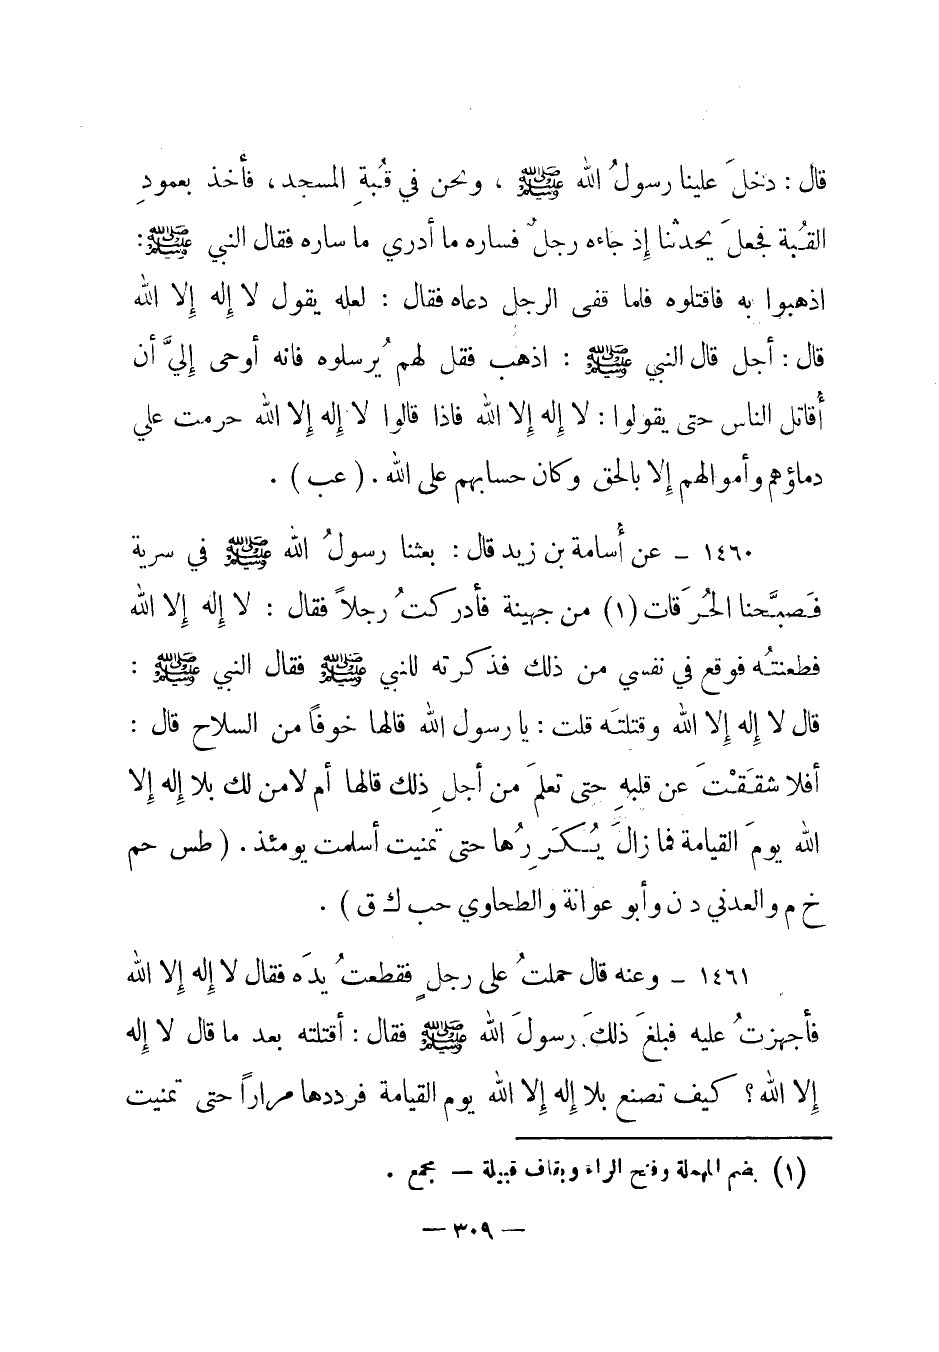 قال : دخلَ علينا رسولُ الله ﷺ ، ونحن في قُبةِ المسجد ، فأخذ بعمودِ
القُبة فجعلَ يحدثنا إذ جاءه رجلٌ فساره ما أدري ما ساره فقال النبي ﷺ :
اذهبوا به فاقتلوه فلما قفى الرجل دعاه فقال : لعله يقول لا إله إلا الله
قال : أجل قال النبي ﷺ : اذهب فقل لهم يُرسلوه فانه أوحى إليَّ أن
أُقاتل الناس حتى يقولوا : لا إله إلا الله فاذا قالوا لا إله إلا الله حرمت علي
دماؤهم وأموالهم إلا بالحق وكان حسابهم على الله . ( عب ) .
١٤٦٠ ـ عن أُسامة بن زيد قال : بعثنا رسولُ الله ﷺ في سرية
فَصبَّحنا الحُرَقات (١) من جهينة فأدركتُ رجلاً فقال : لا إله إلا الله
فطعنتُه فوقع في نفسي من ذلك فذكرته للنبي ﷺ فقال النبي ﷺ :
قال لا إله إلا الله وقتلتَه قلت : يا رسول الله قالها خوفاً من السلاح قال :
أفلا شقَقْتَ عن قلبهِ حتى تعلمَ من أجلِ ذلك قالها أم لا من لك بلا إله إلا
الله يومَ القيامة فما زالَ يُكَرِرُها حتى تمنيت أسلمت يومئذ . ( طس حم
خ م والعدني د ن وأبو عوانة والطحاوي حب ك ق ) .
١٤٦١ ـ وعنه قال حملتُ على رجلٍ فقطعتُ يدَه فقال لا إله إلا الله
فأجهزتُ عليه فبلغَ ذلكَ رسولَ الله ﷺ فقال : أقتلته بعد ما قال لا إله
إلا الله ؟ كيف تصنع بلا إله إلا الله يوم القيامة فرددها مراراً حتى تمنيت
(١) بضم المهملة وفتح الراء وبقاف قبيلة — مجمع .
— ٣٠٩ —